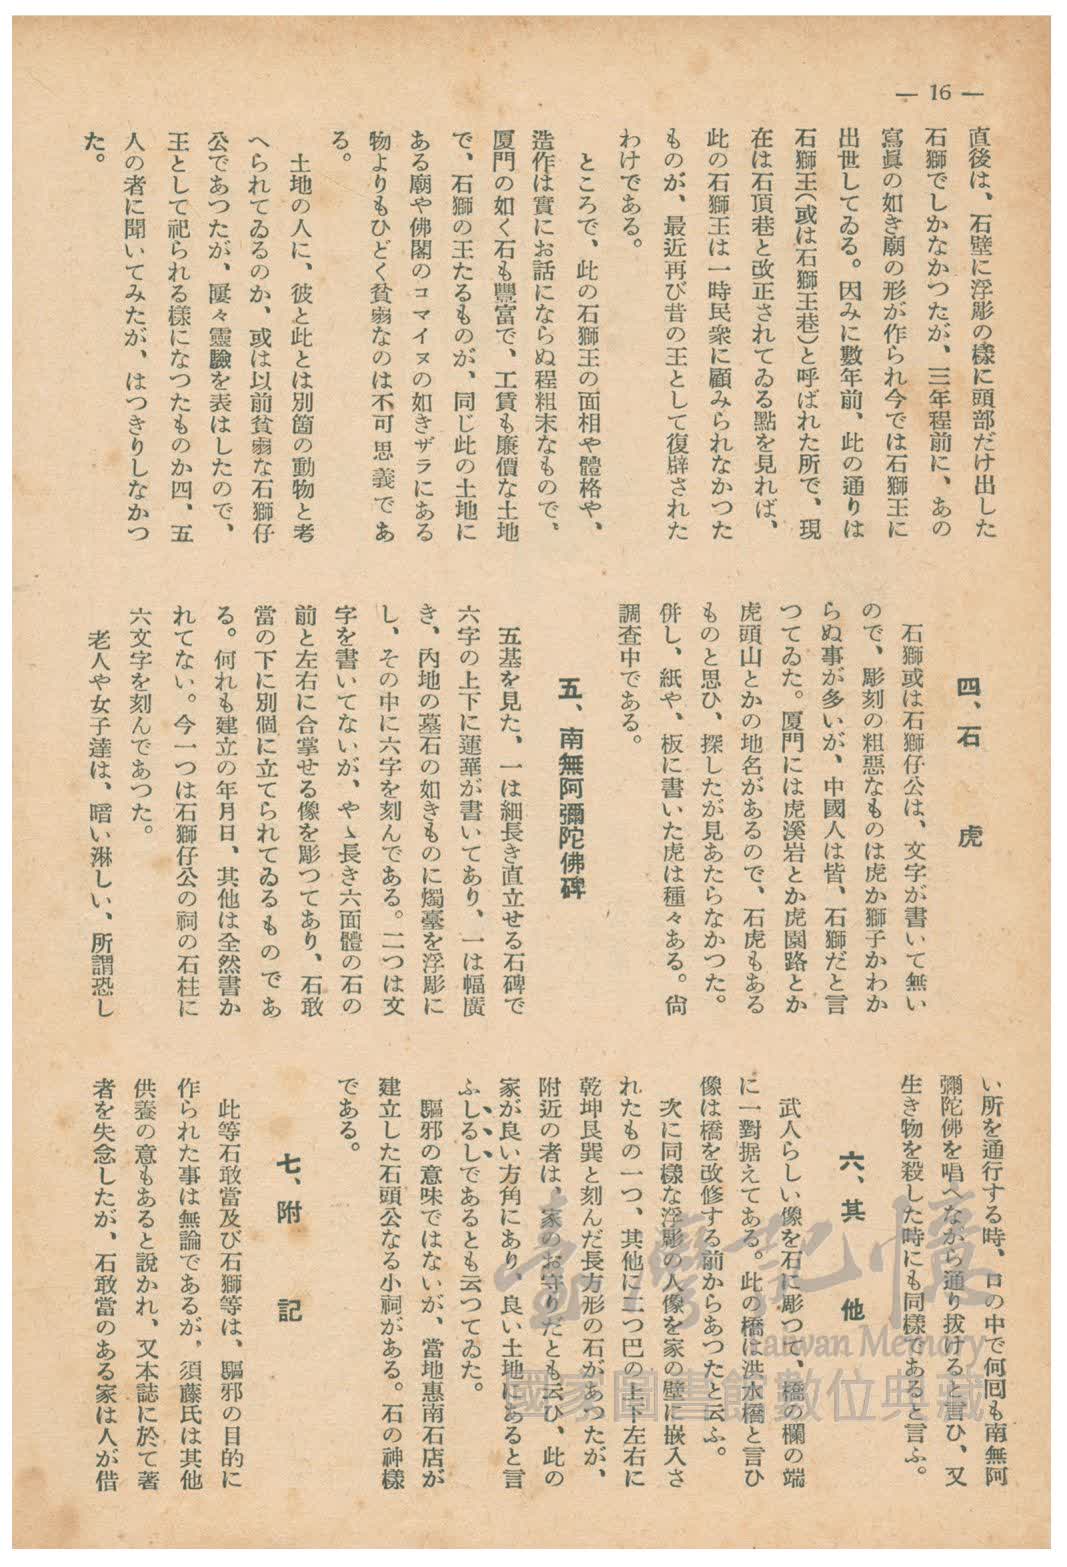 — 16 —
直後は、石壁に浮彫の樣に頭部だけ出した
石獅でしかなかつたが、三年程前に、あの
寫眞の如き廟の形が作られ今では石獅王に
出世してゐる。因みに數年前、此の通りは
石獅王(或は石獅王巷)と呼ばれた所で、現
在は石頂巷と改正されてゐる點を見れば、
此の石獅王は一時民衆に顧みられなかつた
ものが、最近再び昔の王として復辟された
わけである。
ところで、此の石獅王の面相や體格や、
造作は實にお話にならぬ程粗末なもので、
厦門の如く石も豐富で、工賃も廉價な土地
で、石獅の王たるものが、同じ此の土地に
ある廟や佛閣のコマイヌの如きザラにある
物よりもひどく貧弱なのは不可思義であ
る。
土地の人に、彼と此とは別箇の動物と考
へられてゐるのか、或は以前貧弱な石獅仔
公であつたが、屡々靈驗を表はしたので、
王として祀られる樣になつたものか四、五
人の者に聞いてみたが、はつきりしなかつ
た。
四、石　虎
石獅或は石獅仔公は、文字が書いて無い
ので、彫刻の粗惡なものは虎か獅子かわか
らぬ事が多いが、中國人は皆、石獅だと言
つてゐた。厦門には虎溪岩とか虎園路とか
虎頭山とかの地名があるので、石虎もある
ものと思ひ、探したが見あたらなかつた。
併し、紙や、板に書いた虎は種々ある。尙
調査中である。
五、南無阿彌陀佛碑
五基を見た、一は細長き直立せる石碑で
六字の上下に蓮華が書いてあり、一は幅廣
き、內地の墓石の如きものに燭臺を浮彫に
し、その中に六字を刻んである。二つは文
字を書いてないが、やゝ長き六面體の石の
前と左右に合掌せる像を彫つてあり、石敢
當の下に別個に立てられてゐるものであ
る。何れも建立の年月日、其他は全然書か
れてない。今一つは石獅仔公の祠の石柱に
六文字を刻んであつた。
老人や女子達は、暗い淋しい、所謂恐し
い所を通行する時、口の中で何回も南無阿
彌陀佛を唱へながら通り拔けると言ひ、又
生き物を殺した時にも同樣であると言ふ。
六、其　他
武人らしい像を石に彫つて、橋の欄の端
に一對据えてある。此の橋は洪水橋と言ひ
像は橋を改修する前からあつたと云ふ。
次に同樣な浮彫の人像を家の壁に嵌入さ
れたもの一つ、其他に二つ巴の上下左右に
乾坤艮巽と刻んだ長方形の石があつたが、
附近の者は、家のお守りだとも云ひ、此の
家が良い方角にあり、良い土地にあると言
ふしるしであるとも云つてゐた。
驅邪の意味ではないが、當地惠南石店が
建立した石頭公なる小祠がある。石の神樣
である。
七、附　記
此等石敢當及び石獅等は、驅邪の目的に
作られた事は無論であるが、須藤氏は其他
供養の意もあると說かれ、又本誌に於て著
者を失念したが、石敢當のある家は人が借
臺灣記憶
Taiwan Memory
國家圖書館數位典藏